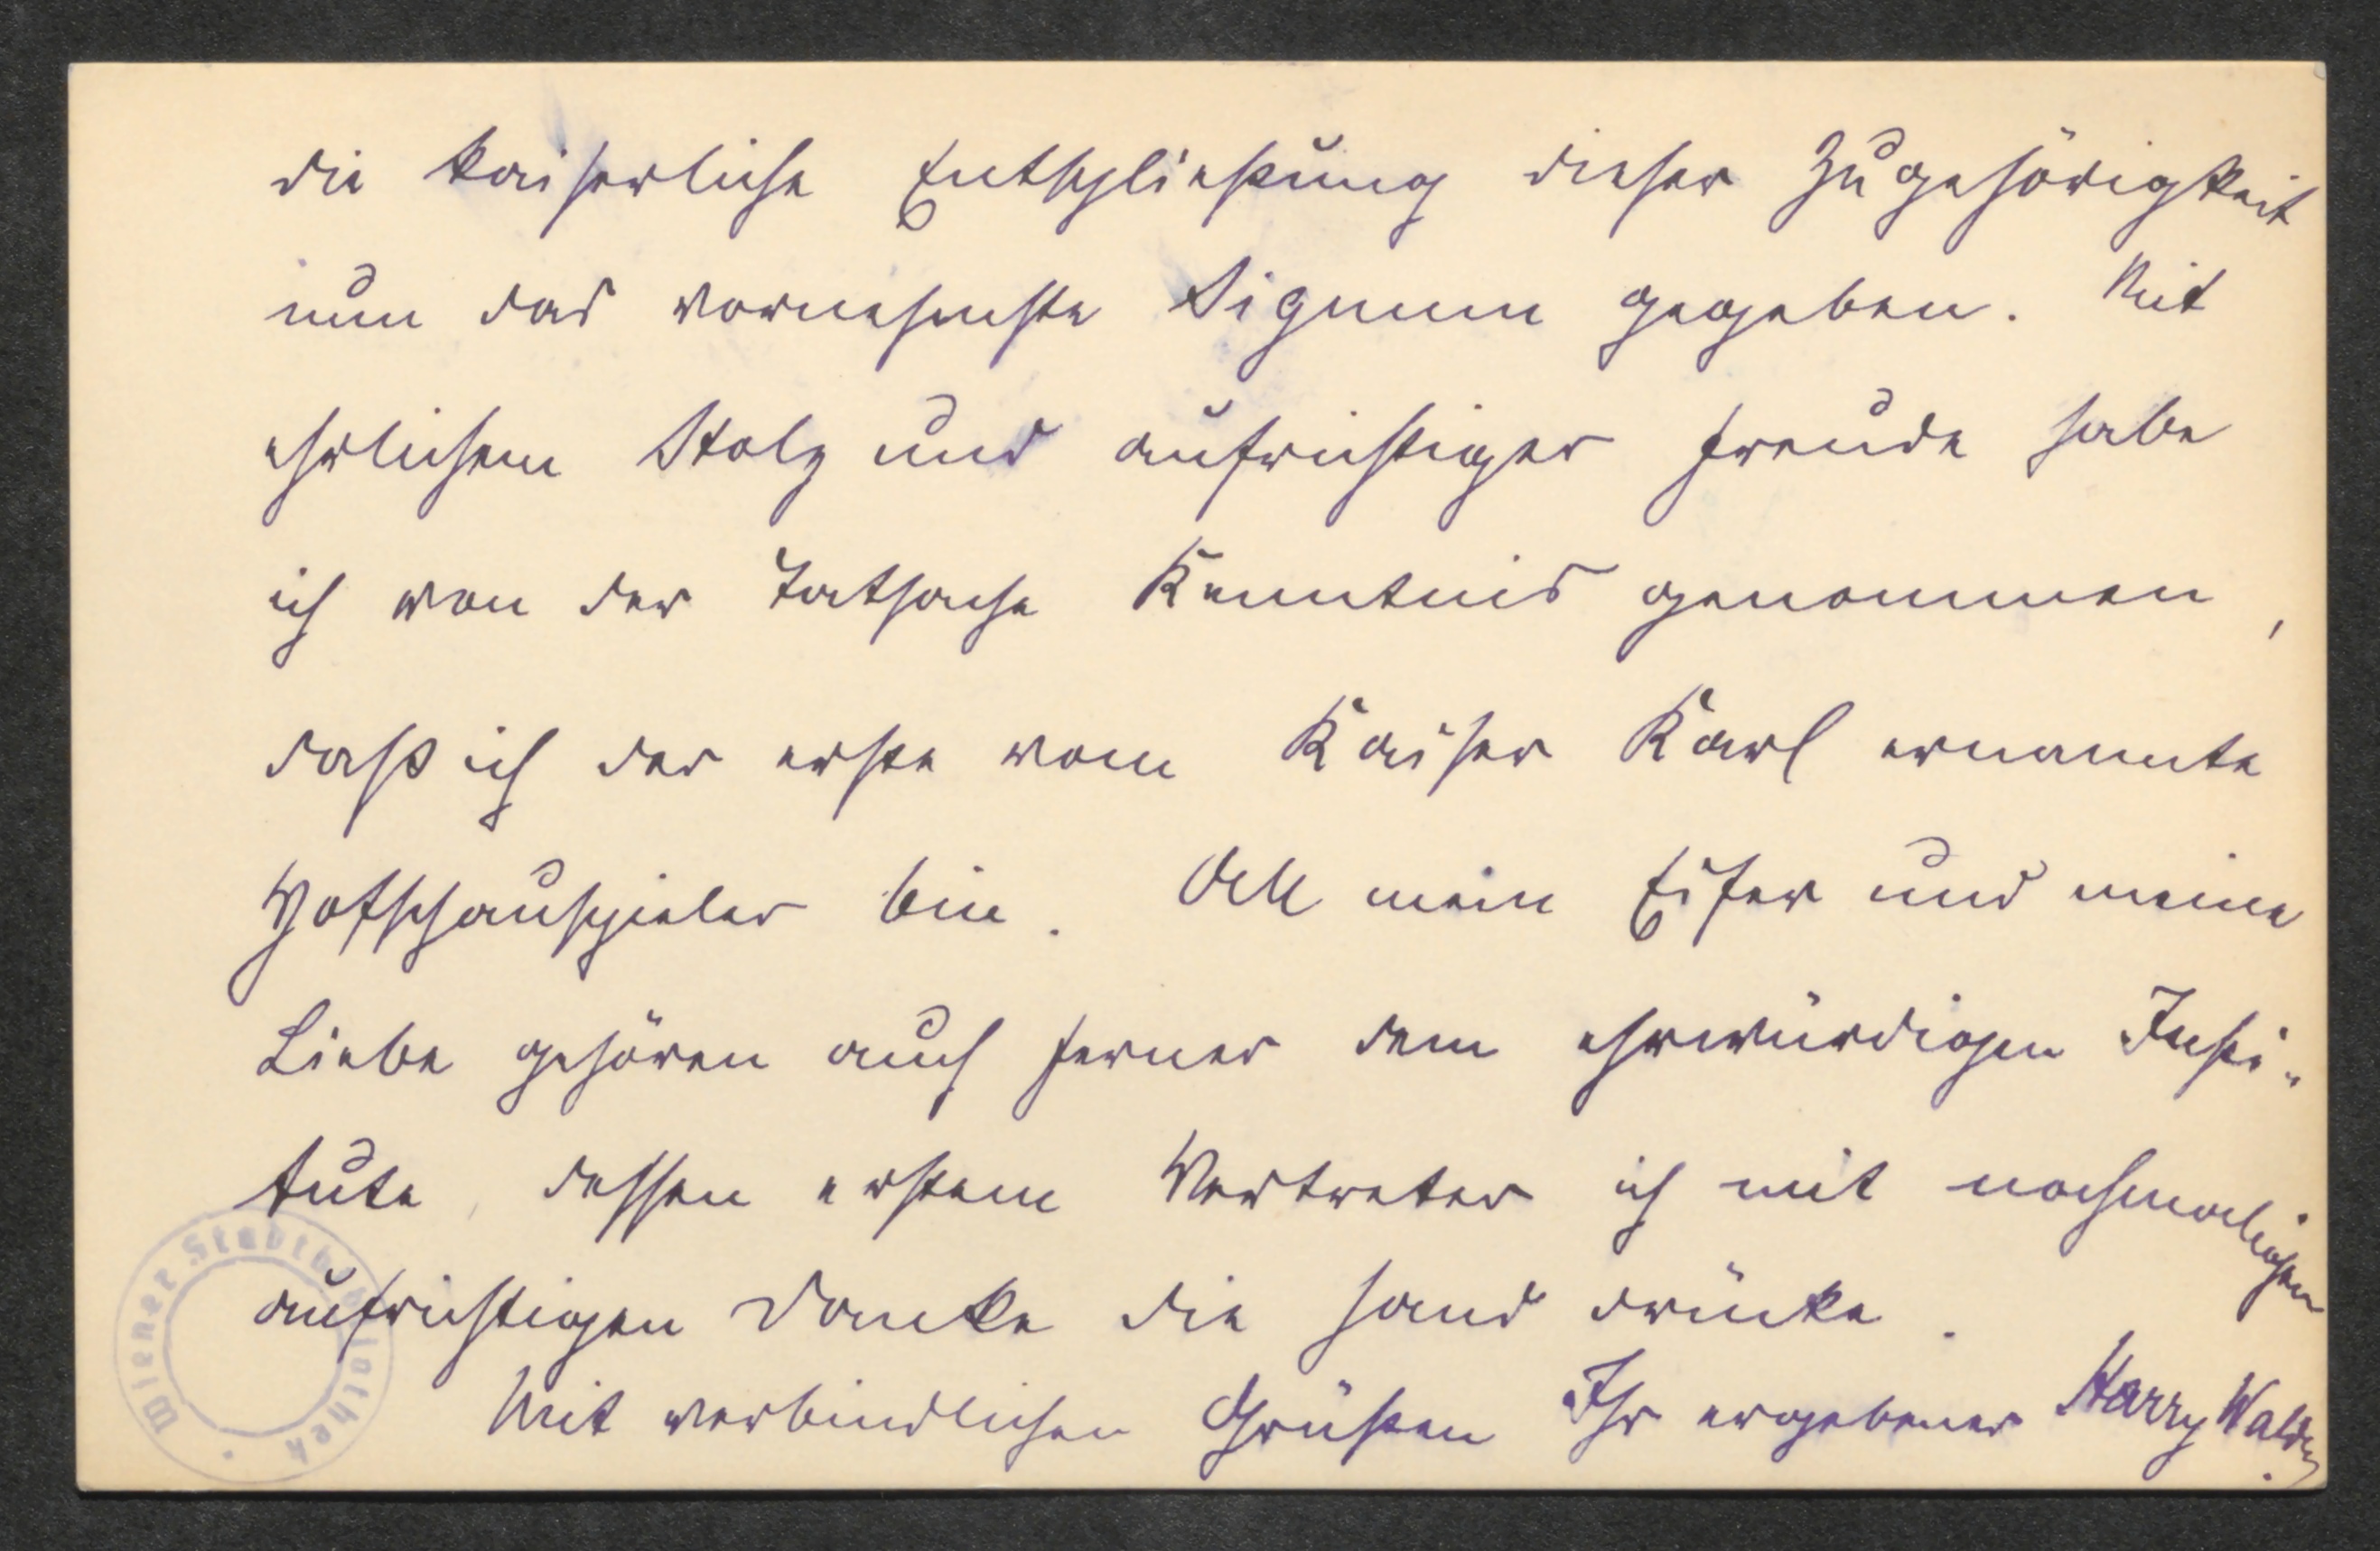 die kaiserliche Entschließung dieser Zugehörigkeit
nun das vornehmste Signum gegeben. Mit
ehrlichem Stolz und aufrichtiger Freude habe
ich von der Tatsache Kenntnis genommen,
daß ich der erste vom Kaiser Karl ernannte
Hofschauspieler bin. All mein Eifer und meine
Liebe gehören auch ferner dem ehrwürdigen Insti-
tute, dessen erstem Vertreter ich mit nochmaligen
aufrichtigen Danke die Hand drücke.
Mit verbindlichen Grüßen Ihr ergebener Harry Walden
Wiener Stadtbibliothek